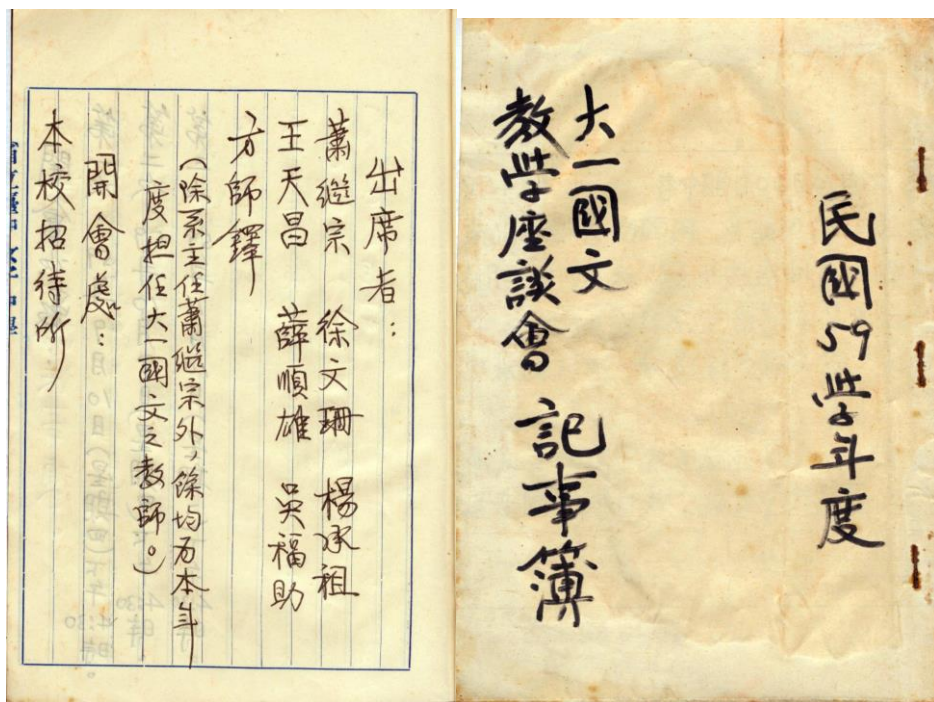 民國59學年度
大一國文
教學座談會 記事簿
出席者：
蕭繼宗 徐文珊 楊承祖
王天昌 薛順雄 吳福助
方師鐸
（除系主任蕭繼宗外，餘均为本年
度担任大一國文之教師。）
開會處：
本校招待所